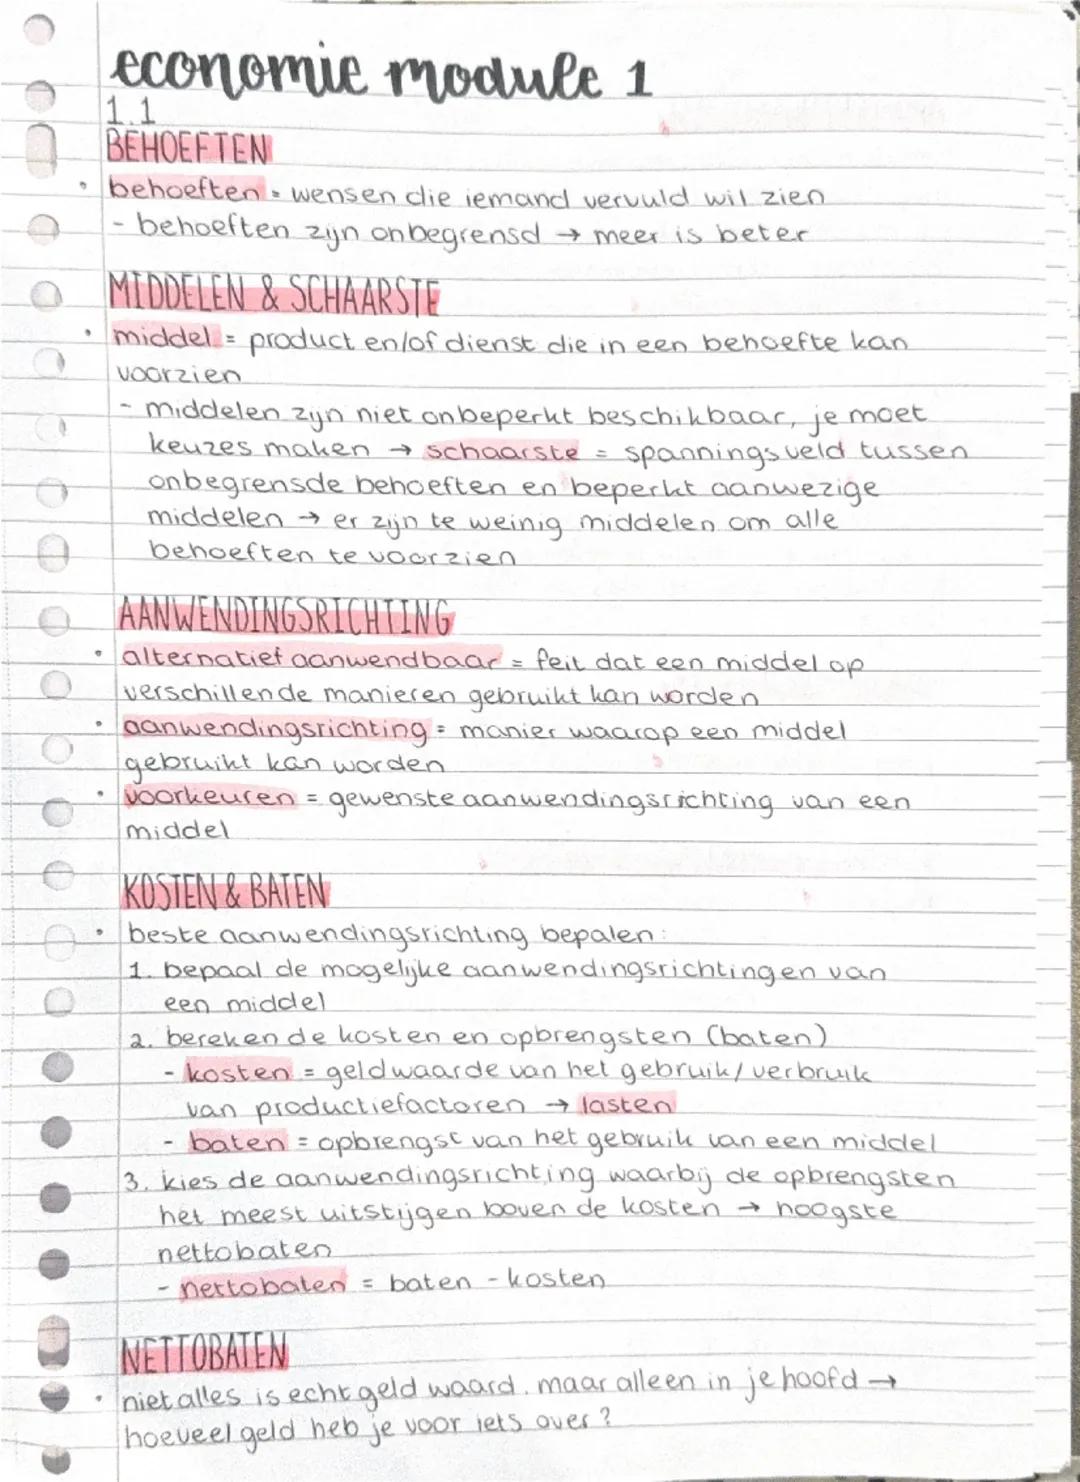 economie module 1
1.1
BEHOEFTEN
• behoeften = wensen die iemand vervuld wil zien
- behoeften zijn onbegrensd → meer is beter
MIDDELEN & SCHAARSTE
• middel = product en/of dienst die in een behoefte kan
voorzien
- middelen zijn niet onbeperkt beschikbaar, je moet
keuzes maken → schaarste = spanningsveld tussen
onbegrensde behoeften en beperkt aanwezige
middelen → er zijn te weinig middelen om alle
behoeften te voorzien
AANWENDINGSRICHTING
• alternatief aanwendbaar = feit dat een middel op
verschillende manieren gebruikt kan worden
• aanwendingsrichting = manier waarop een middel
gebruikt kan worden
• voorkeuren = gewenste aanwendingsrichting van een
middel
KOSTEN & BATEN
• beste aanwendingsrichting bepalen:
1. bepaal de mogelijke aanwendingsrichtingen van
een middel
2. bereken de kosten en opbrengsten (baten)
- kosten = geldwaarde van het gebruik/verbruik
van productiefactoren → lasten
- baten = opbrengst van het gebruik van een middel
3. kies de aanwendingsrichting waarbij de opbrengsten
het meest uitstijgen boven de kosten → hoogste
nettobaten
- nettobaten = baten - kosten
NETTOBATEN
• niet alles is echt geld waard, maar alleen in je hoofd →
hoeveel geld heb je voor iets over?